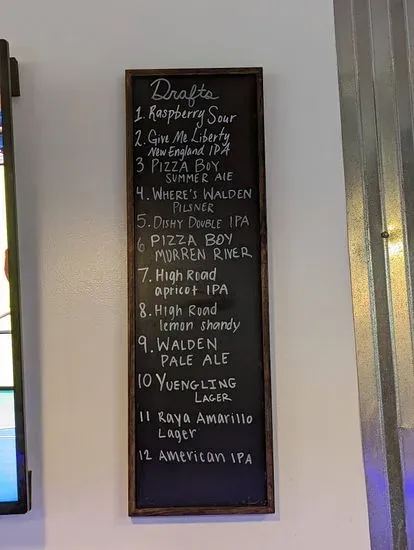 Drafts
1. Raspberry Sour
2. Give Me Liberty
New England IPA
3 PIZZA BOY
SUMMER ALE
4. WHERE'S WALDEN
PILSNER
5. DISHY DOUBLE IPA
6 PIZZA BOY
MURREN RIVER
7. High Road
apricot IPA
8. High Road
lemon shandy
9. WALDEN
PALE ALE
10 YUENGLING
LAGER
11 Raya Amarillo
Lager
12 American IPA